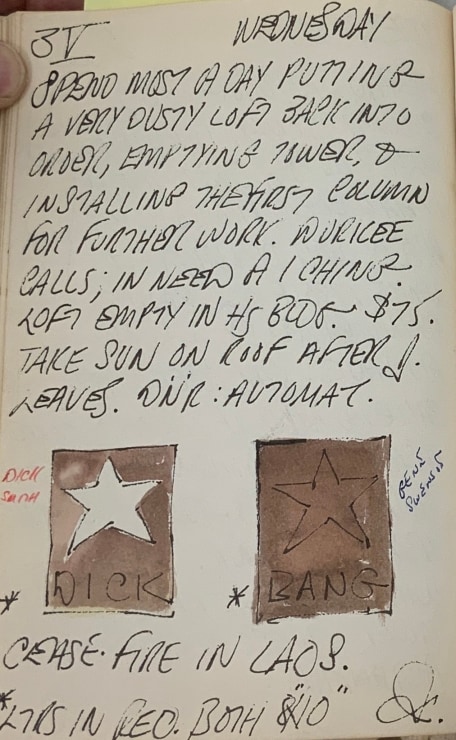 3V WEDNESDAY
SPEND MOST A DAY PUTTING
A VERY DUSTY LOFT BACK INTO
ORDER, EMPTYING TOWER, &
INSTALLING THE FIRST COLUMN
FOR FURTHER WORK. DURKEE
CALLS; IN NEED A I CHING.
LOFT EMPTY IN HS BLDG. $75.
TAKE SUN ON ROOF AFTER J.
LEAVES. DNR: AUTOMAT.
DICK
SMITH
GENE
SWENSON
* DICK
* BANG
CEASE-FIRE IN LAOS.
*LTRS IN RED. BOTH "$10"